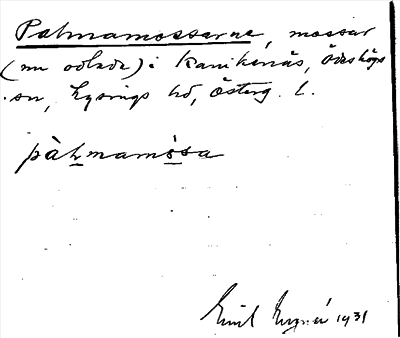 Palmamossarne, mossar
(nu odlade) i Kanikenäs, Ödeshögs
sn, Lysings hd, Österg. l.
pàlmamòssa
Emil 1931